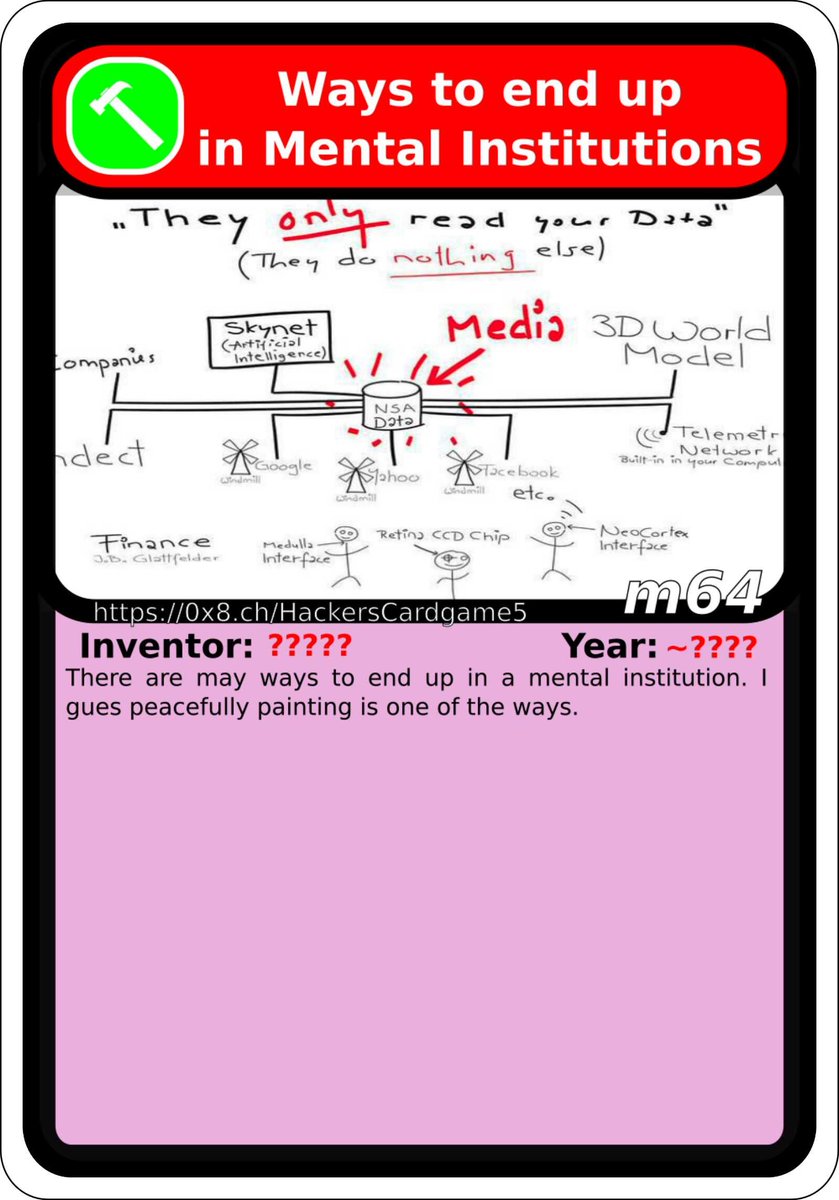 Ways to end up
in Mental Institutions
„They only read your Data"
(They do nothing else)
Skynet
(Artificial
Intelligence)
Media
3D World
Model
Companies
NSA
Data
ndect
Google
windmill
Yahoo
windmill
Facebook
windmill
etc.
Telemetr
Network
Built-in in your Comput
Finance
J.B. Glattfelder
Medulla
Interface
Retina CCD Chip
NeoCortex
Interface
m64
https://0x8.ch/HackersCardgame5
Inventor: ????? Year: ~????
There are may ways to end up in a mental institution. I
gues peacefully painting is one of the ways.